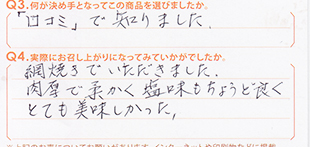 Q3.何が決め手となってこの商品を選びましたか。
「口コミ」で知りました.
Q4.実際にお召し上がりになってみていかがでしたか。
網焼きでいただきました.
肉厚で柔かく塩味もちょうど良く
とても美味しかった。